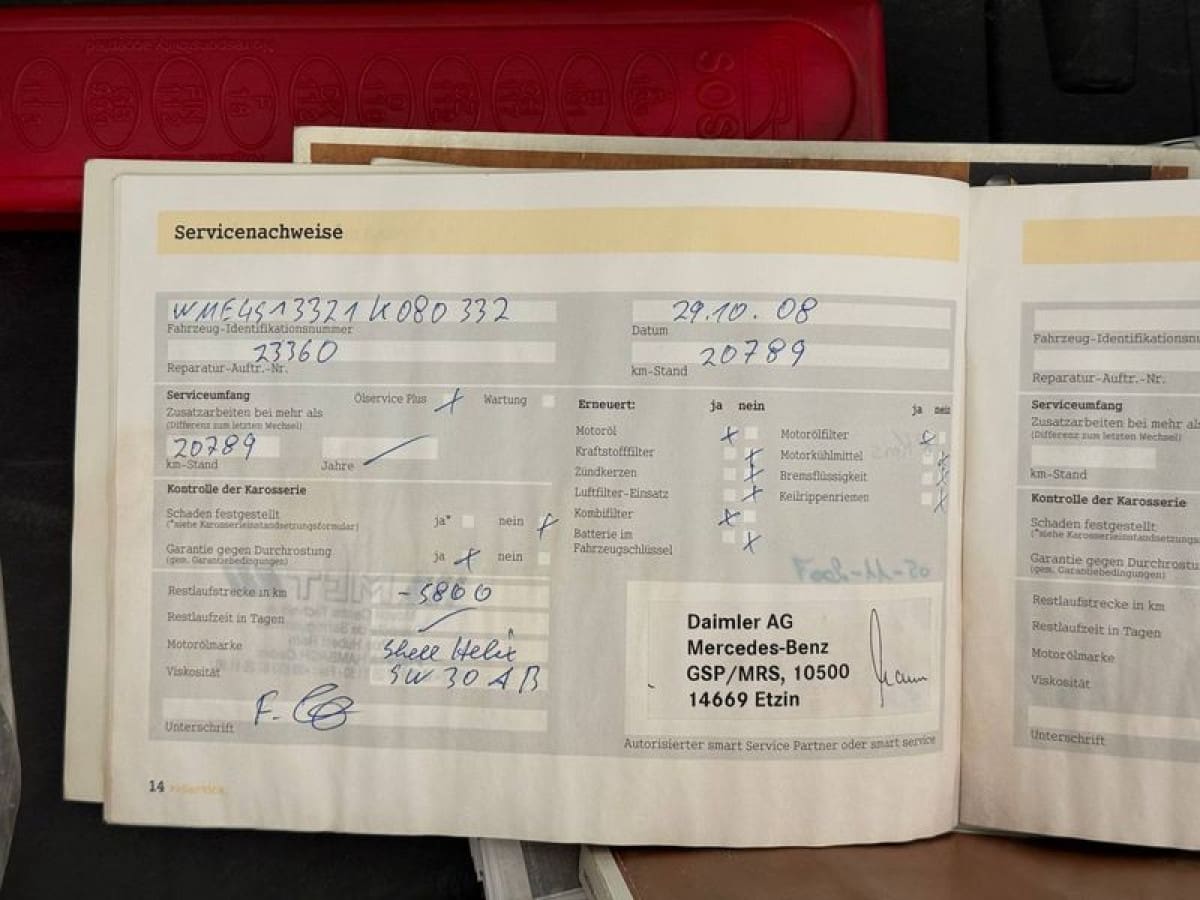 SOS
Servicenachweise
WME4513321K080332
Fahrzeug-Identifikationsnummer
29.10.08
Datum
23360
Reparatur-Auftr.-Nr.
20789
km-Stand
Serviceumfang
Ölservice Plus
Wartung
Zusatzarbeiten bei mehr als
(Differenz zum letzten Wechsel)
20789
km-Stand
Jahre
Kontrolle der Karosserie
Schaden festgestellt
ja*
nein
(*siehe Karosserieinstandsetzungsformular)
Garantie gegen Durchrostung
ja
nein
(gem. Garantiebedingungen)
Restlaufstrecke in km
-5800
Restlaufzeit in Tagen
Motorölmarke
Shell Helix
Viskosität
5W 30 AB
F.
Unterschrift
Erneuert:
ja nein
ja nein
Motoröl
Motorölfilter
Kraftstofffilter
Motorkühlmittel
Zündkerzen
Bremsflüssigkeit
Luftfilter-Einsatz
Keilrippenriemen
Kombifilter
Batterie im
Fahrzeugschlüssel
Daimler AG
Mercedes-Benz
GSP/MRS, 10500
14669 Etzin
Autorisierter smart Service Partner oder smart service
14
Fahrzeug-Identifikationsnu
Reparatur-Auftr.-Nr.
Serviceumfang
Zusatzarbeiten bei mehr als
(Differenz zum letzten Wechsel)
km-Stand
Kontrolle der Karosserie
Schaden festgestellt
(*siehe Karosserieinstandsetzungs
Garantie gegen Durchrostu
(gem. Garantiebedingungen)
Restlaufstrecke in km
Restlaufzeit in Tagen
Motorölmarke
Viskosität
Unterschrift